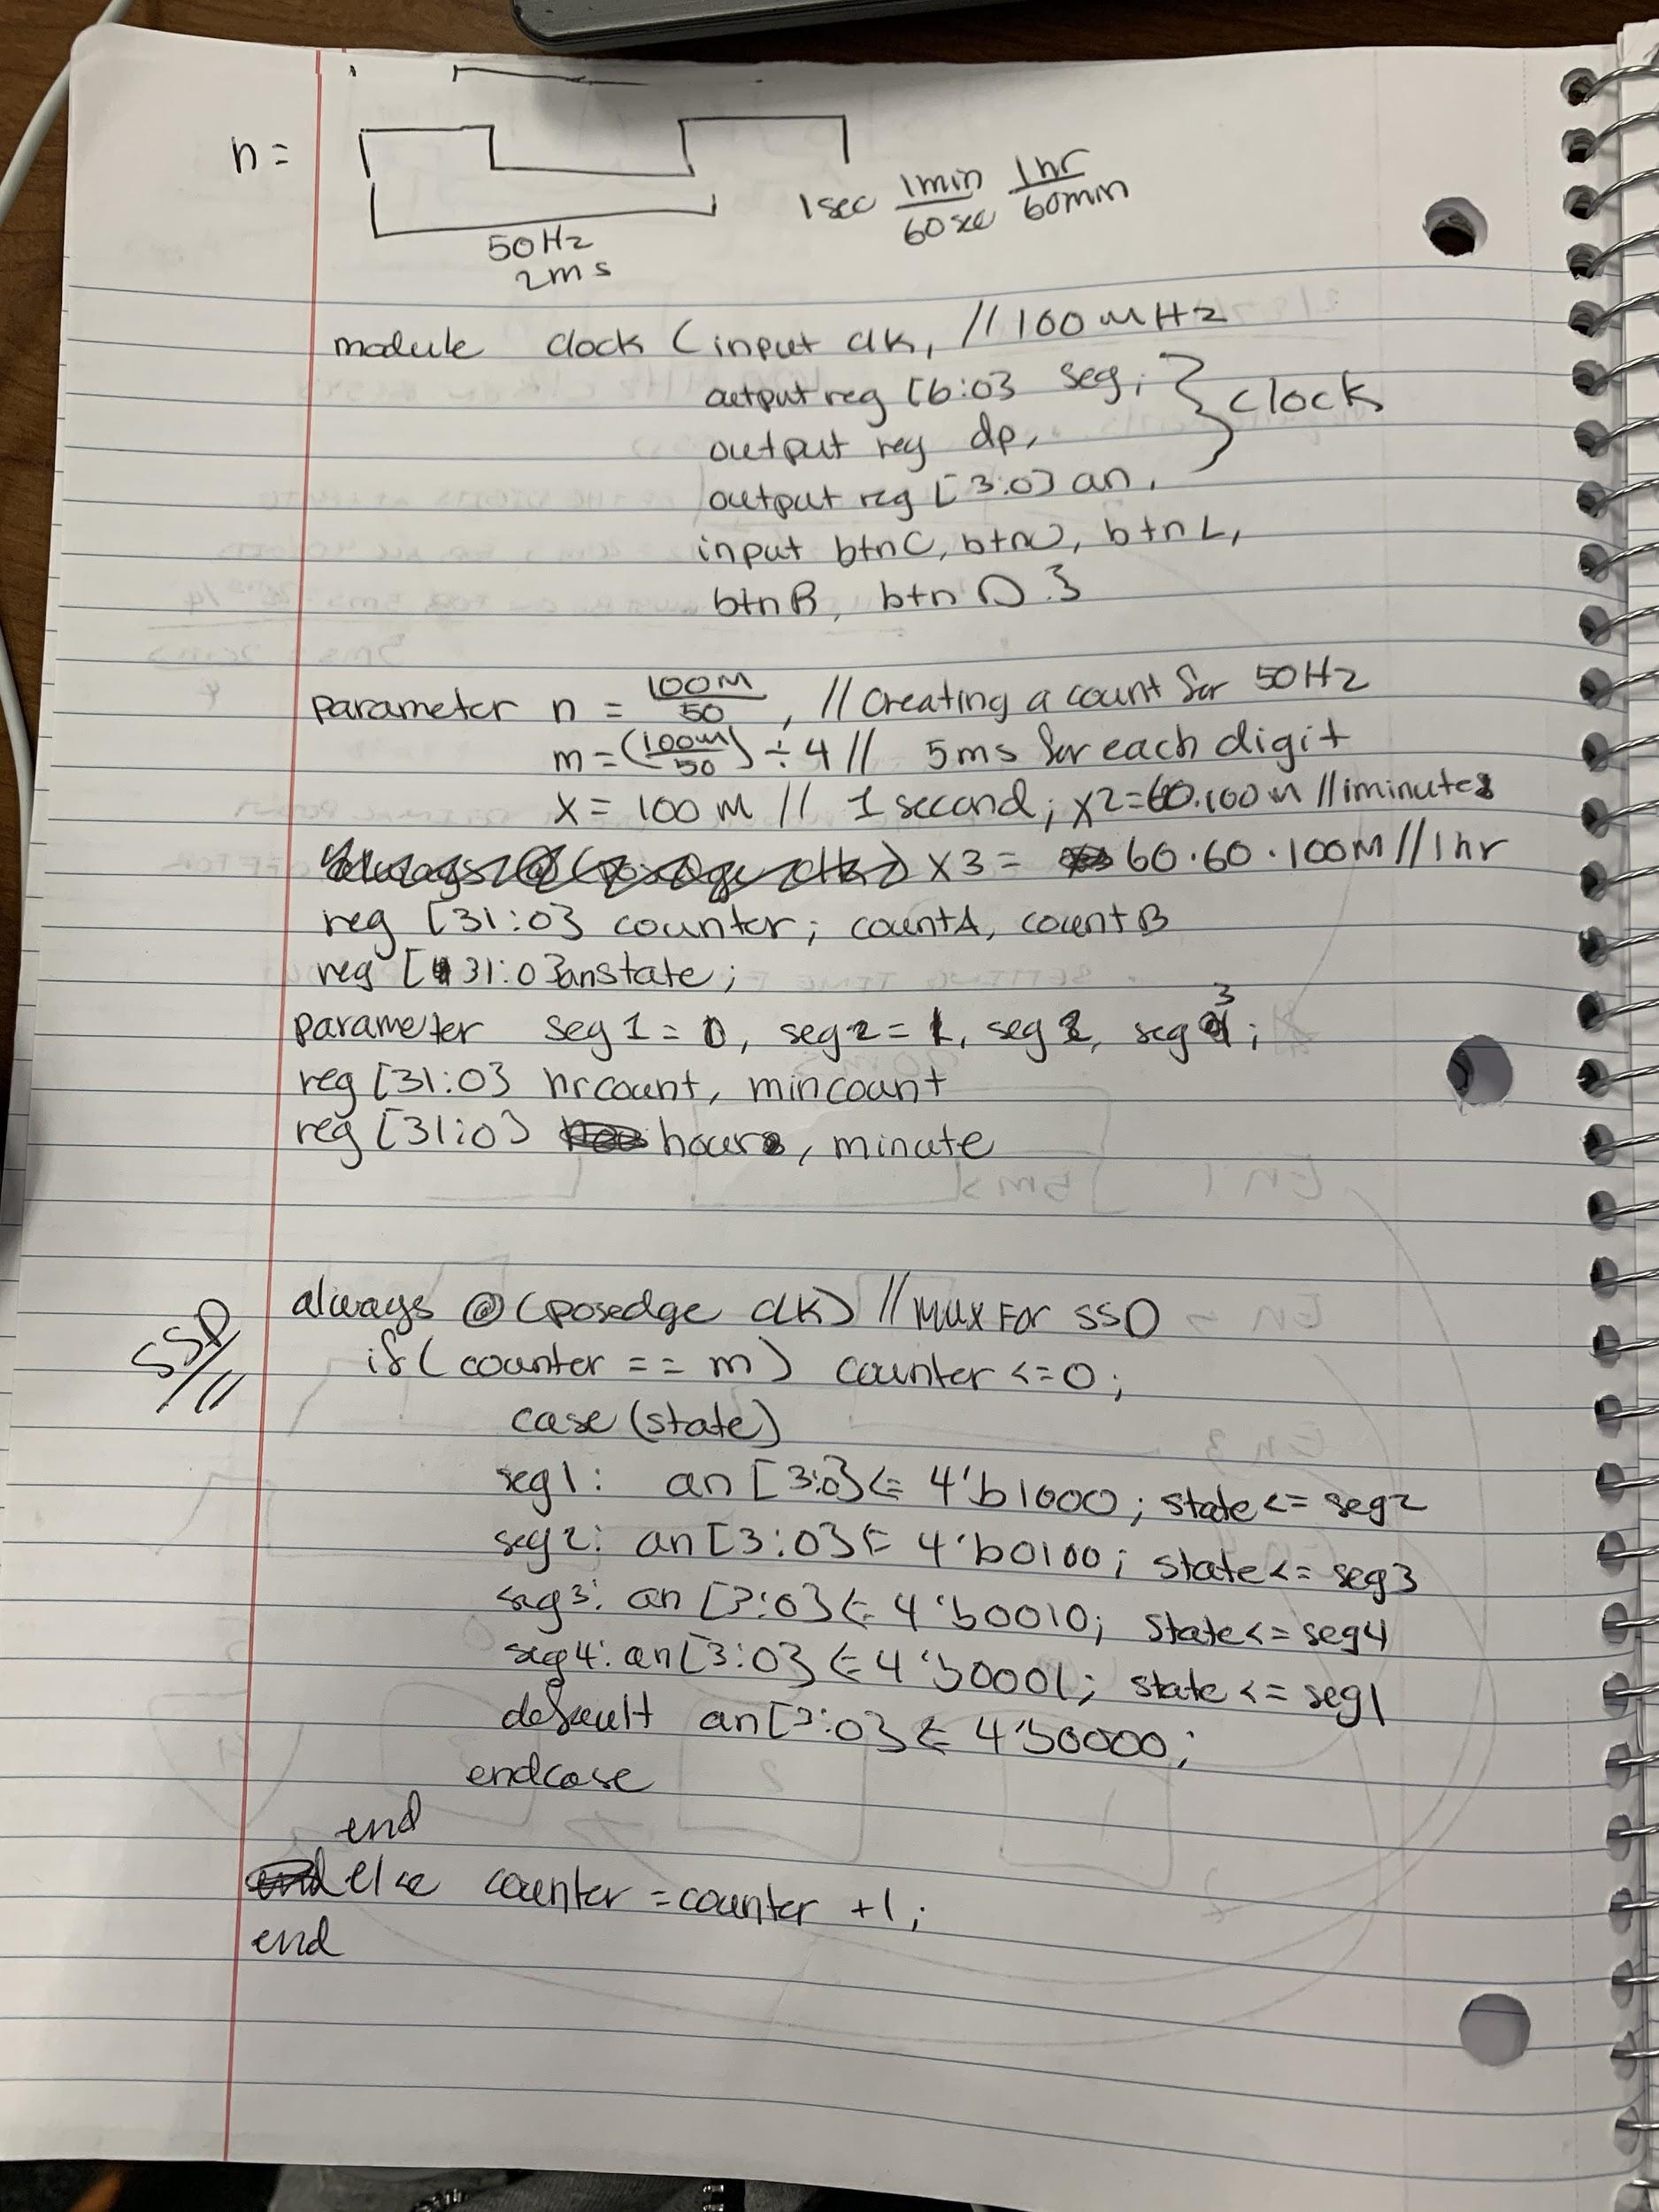 n =
1sec 1min/60sec 1hr/60min
50Hz
2ms
module clock (input clk, //100MHz
output reg [6:0] seg,
output reg dp, } clock
output reg [3:0] an,
input btnC, btnU, btnL,
btnR, btnD }
parameter n = 100M/50, // Creating a count for 50Hz
m = (100M/50) ÷ 4 // 5ms for each digit
x = 100M // 1 second; x2=60.100M //1minute
x3 = 60·60·100M//1hr
reg [31:0] counter; countA, countB
reg [31:0] anstate;
parameter seg1 = 0, seg2 = 1, seg 2, seg 3;
reg [31:0] hrcount, mincount
reg [31:0] hours, minute
always @ (posedge clk) // MUX FOR SSD
SSD//
if( counter == m) counter <=0;
case (state)
seg1: an [3:0] <= 4'b1000; state <= seg2
seg2: an [3:0] <= 4'b0100; state <= seg3
seg3: an [3:0] <= 4'b0010; state <= seg4
seg4: an[3:0] <= 4'b0001; state <= seg1
default an[3:0] <= 4'b0000;
endcase
end
else counter =counter +1;
end